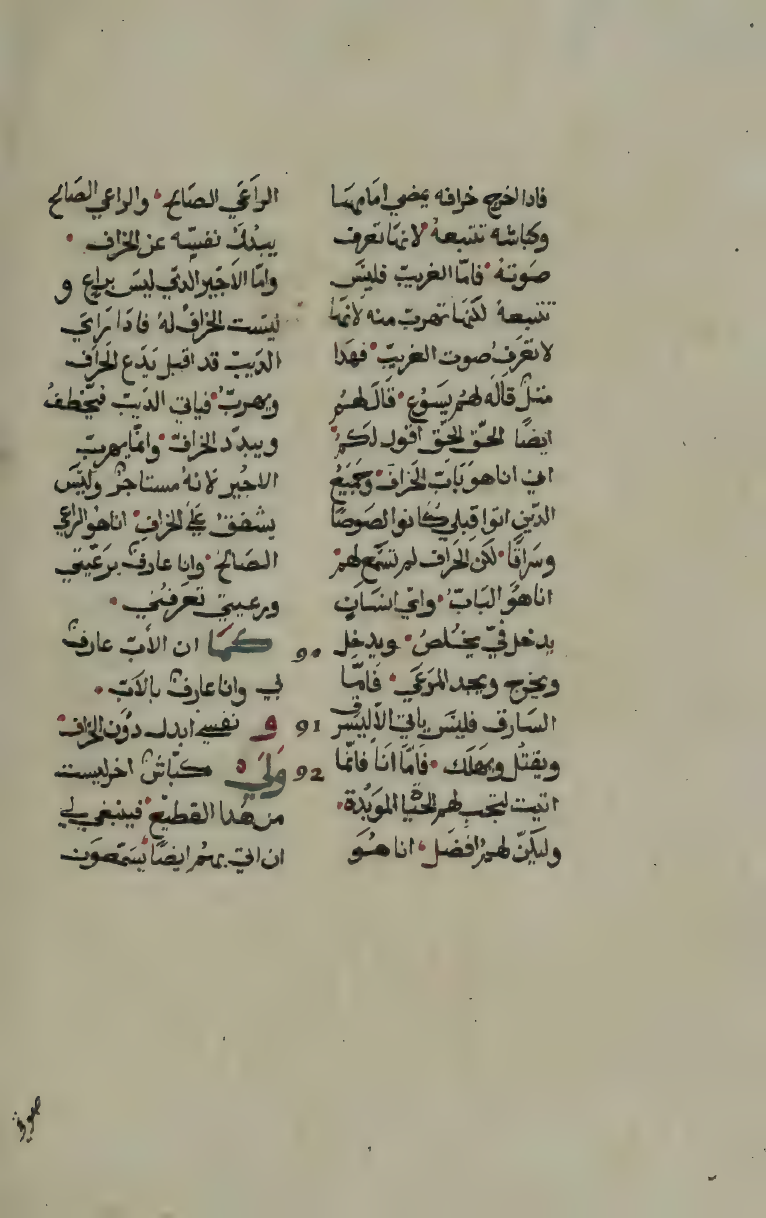 فادا اخرج خرافه يمضي امامهما
وكباشه تتبعهُ لانها تعرف
صوتهُ فامّا الغريبّ فليَس
تتبعهُ لكنها تهرب منه لانّها
لا تعَرَف صوت الغريبّ فهَدا
متلٌ قاله لهُم يَسوُع قالَ لهُم
ايضًا الحقّ الحقّ اقول لكمُ
اني انا هو بَابَ الخرَاف وجميَعُ
الدّين اتوا قبلي كانوا لصوصًا
وسَراقًا لكن الخرَاف لم تسَمع لهمُ
انا هُو البَابّ وايّ انسَانٍ
يدخل فيّ يخلصُ ويدخل
ويخرج ويجد المرَعَي فامّا
السَارق فليَس ياتي الا ليسَرق
ويقتل ويهَلك فامّا انا فانّما
اتيت لتجب لهم الحيَاة الموبَدة
وليَكنّ لهمُ افضَل انا هُوَ
الرَاعَي الصَالح والراعي الصَالح
يبدلُ نفسَه عن الخراف
وامّا الاجيَر الدَي ليَس براعٍ و
ليسَت الخرافُ لهُ فادَا يَرايَ
الديبّ قد اقبل يَدَع الخرَاف
ويهربّ فياتي الدّيب فيخطفُ
ويبدّد الخرافّ وانمّا يهربّ
الاجيُر لانهُ مستاجرٌ وليَس
يشفق علَي الخرافِ انا هو الراعي
الصَالحُ وانا عارفٌ برَعَيتي
ورعيتي تعَرفُني
90 كمَا ان الآبّ عارفٌ
بي وانا عارفٌ بالاَبّ
91 و نفسي ابدل دوُن الخرافّ
92 ولَي كبَاشٌ اخر ليست
من هُدا القطيَع فينبغي لي
ان اتي بهمُ ايضًا يسَمَعوَن
صوتي